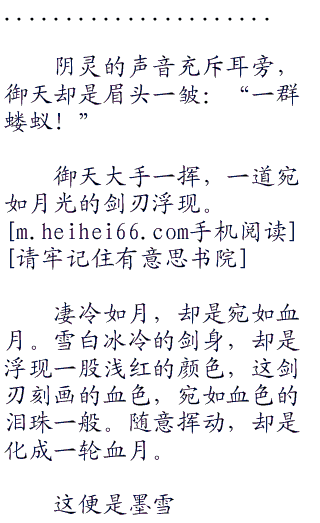 .......................
阴灵的声音充斥耳旁，
御天却是眉头一皱：“一群
蝼蚁！”
御天大手一挥，一道宛
如月光的剑刃浮现。
[m.heihei66.com手机阅读]
[请牢记住有意思书院]
凄冷如月，却是宛如血
月。雪白冰冷的剑身，却是
浮现一股浅红的颜色，这剑
刃刻画的血色，宛如血色的
泪珠一般。随意挥动，却是
化成一轮血月。
这便是墨雪